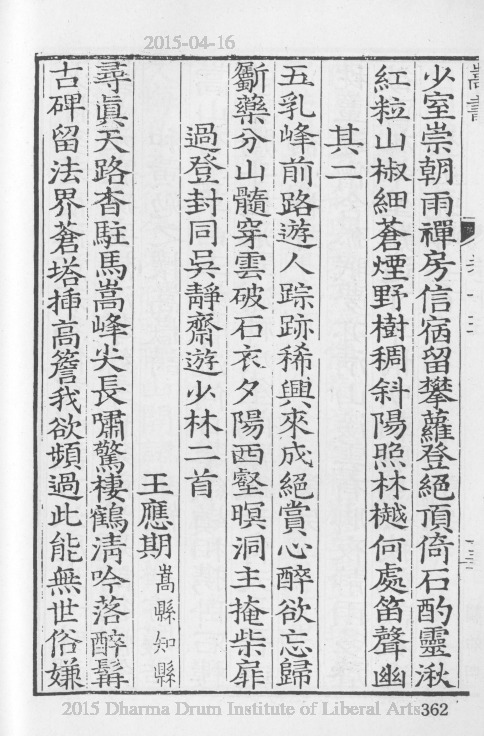 2015-04-16
少室崇朝雨禪房信宿留攀蘿登絕頂倚石酌靈湫
紅粒山椒細蒼煙野樹稠斜陽照林樾何處笛聲幽
其二
五乳峰前路遊人踪跡稀興來成絕賞心醉欲忘歸
斸藥分山髓穿雲破石衣夕陽西壑暝洞主掩柴扉
過登封同吳靜齋遊少林二首
王應期嵩縣知縣
尋真天路杳駐馬嵩峰尖長嘯驚棲鶴淸吟落醉髯
古碑留法界蒼塔揷高簷我欲頻過此能無世俗嫌
2015 Dharma Drum Institute of Liberal Arts
362